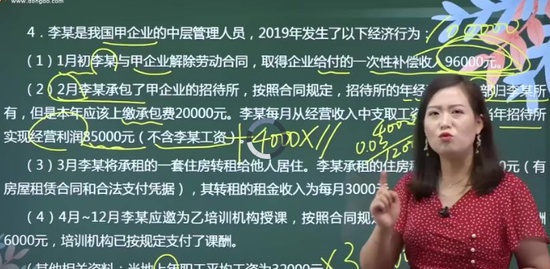 www.dongao.com
4．李某是我国甲企业的中层管理人员，2019年发生了以下经济行为：
（1）1月初李某与甲企业解除劳动合同，取得企业给付的一次性补偿收 96000元。
（2）2月李某承包了甲企业的招待所，按照合同规定，招待所的年经 部归李某所
有，但是本年应该上缴承包费20000元，李某每月从经营收入中支取工资 年招待所
实现经营利润85000元（不含李某工资） +4000X11
0.03
（3）3月李某将承租的一套住房转租给他人居住。李某承租的住房 元（有
房屋租赁合同和合法支付凭据），其转租的租金收入为每月3000
（4）4月~12月李某应邀为乙培训机构授课，按照合同规
6000元，培训机构已按规定支付了课酬。 X3
（其他相关资料：当地上年职工平均工资为32000元